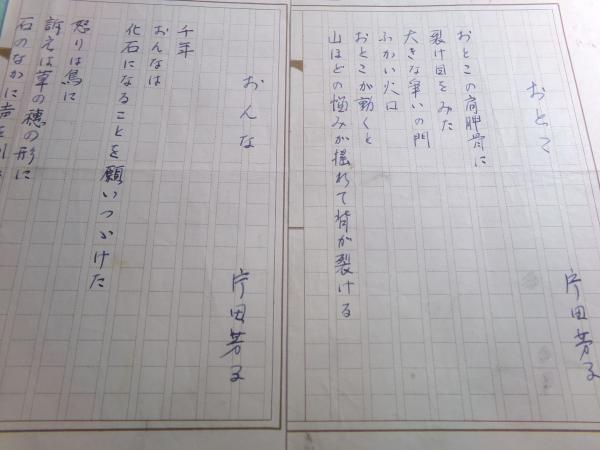 おとこ
片田芳子
おとこの肩胛骨に
裂け目をみた
大きな争いの門
ふかい火口
おとこが動くと
山ほどの悩みが揺れて背が裂ける
おんな
片田芳子
千年
おんなは
化石になることを願いつづけた
怒りは鳥に
訴えは草の穂の形に
石のなかに